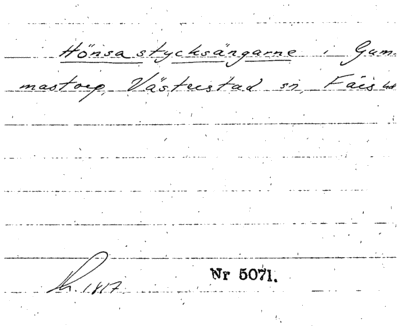 Hönsastycksängarne i Gum-
mastorp, Västerstad sn, Färs hd
1817
Nr 5071.